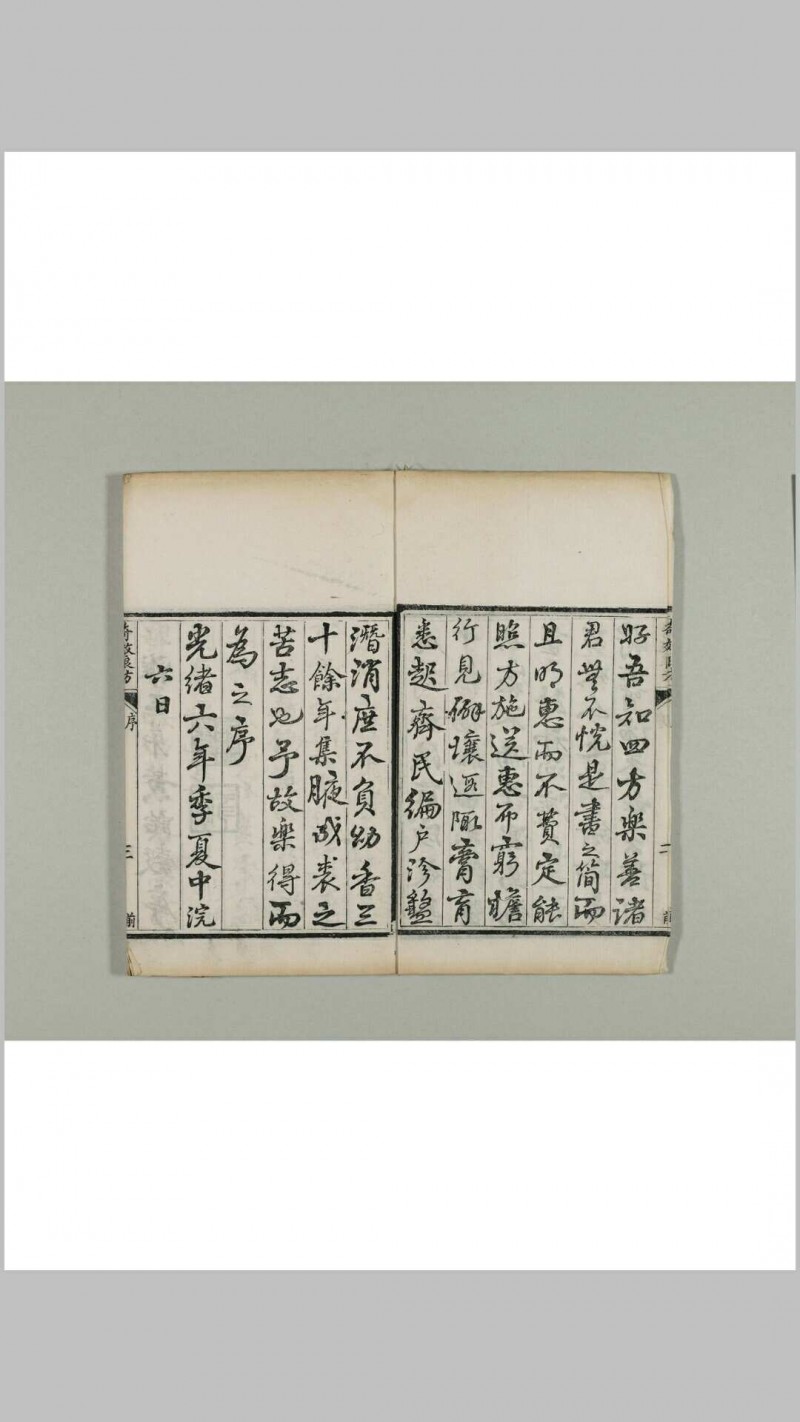 好吾知四方樂善諸
君無不悅是書之簡而
且明惠而不費定能
照方施送惠而窮瞻
行見僻壤遐陬膏肓
悉起齊民編户沴盭
潛消庶不負幼香三
十餘年集腋成裘之
苦志也予故樂得而
為之序
光緒六年季夏中浣
六日
奇效良方
序
三
二